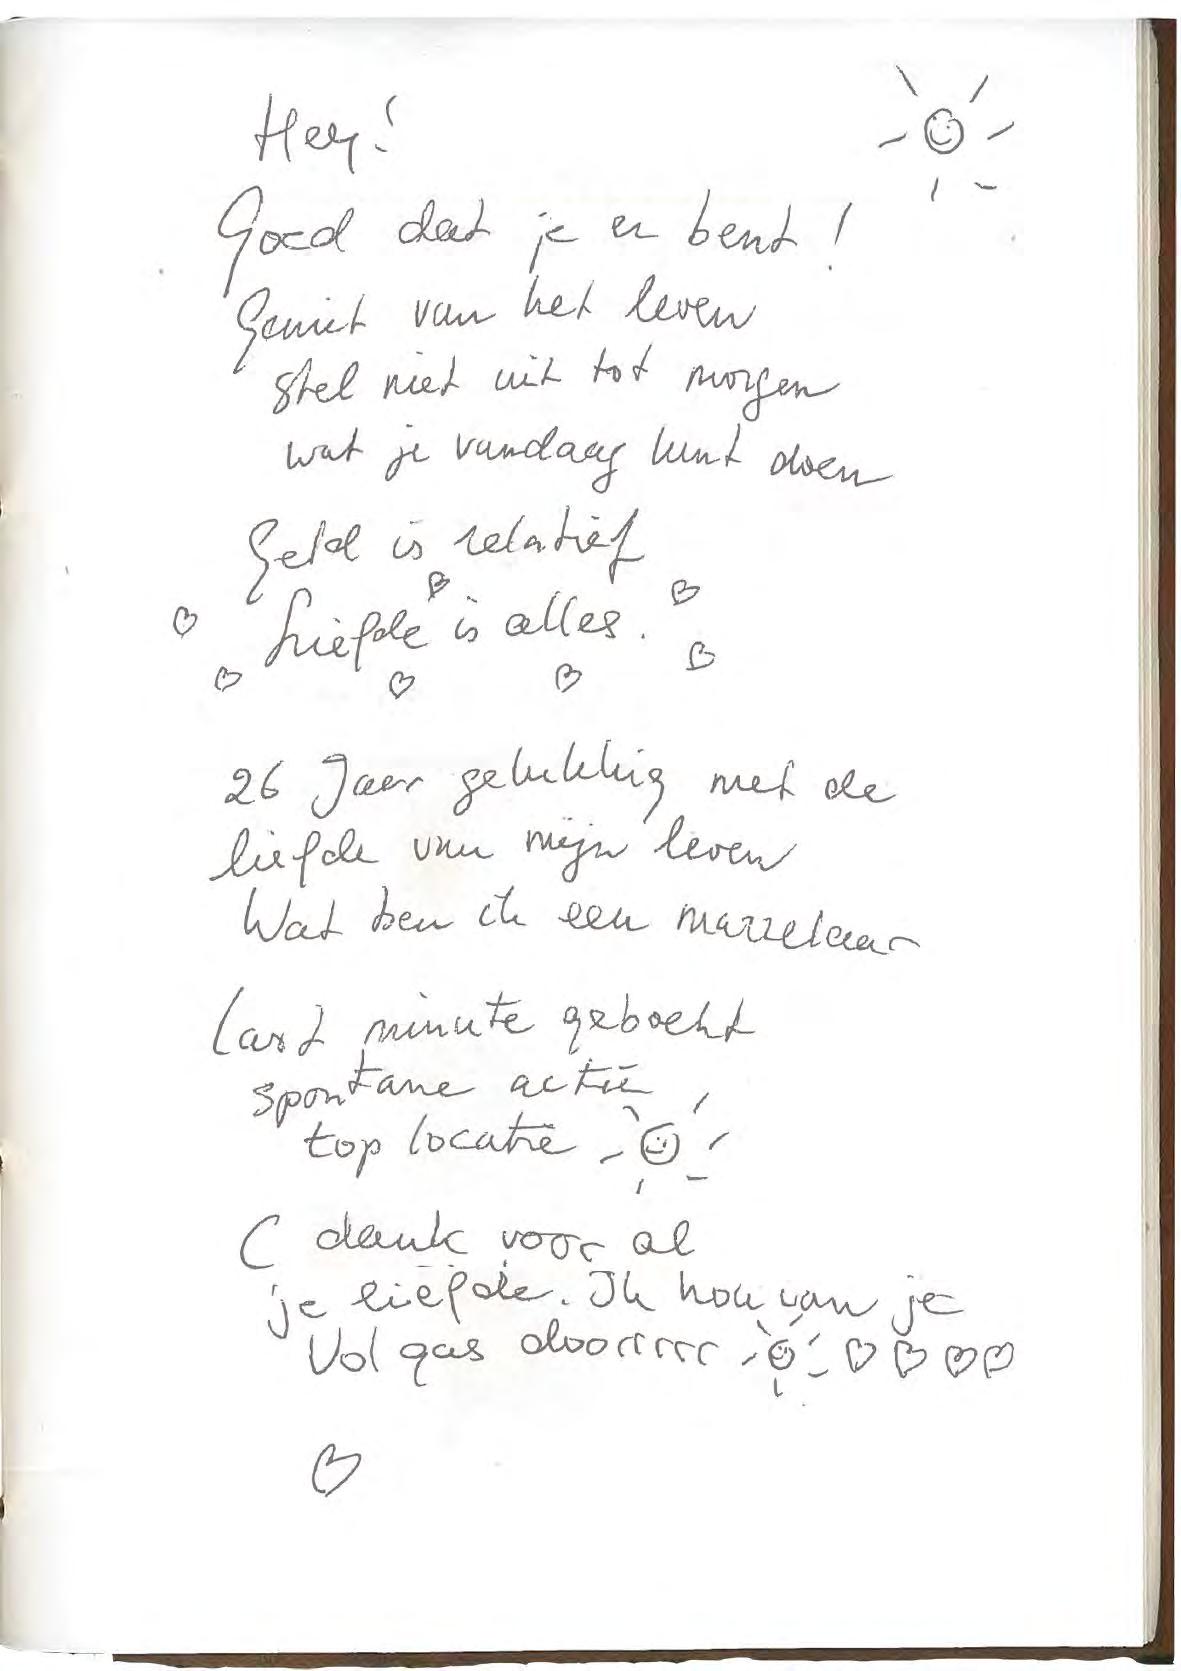 Hey!
Goed dat je er bent!
Geniet van het leven
stel niet uit tot morgen
wat je vandaag kunt doen
Geld is relatief
Liefde is alles.
26 Jaar gelukkig met de
liefde van mijn leven
Wat ben ik een mazzelaar
last minute geboekt
spontane actie
top locatie
C dank voor al
je liefde. Ik hou van je
Vol gas doorrrrr